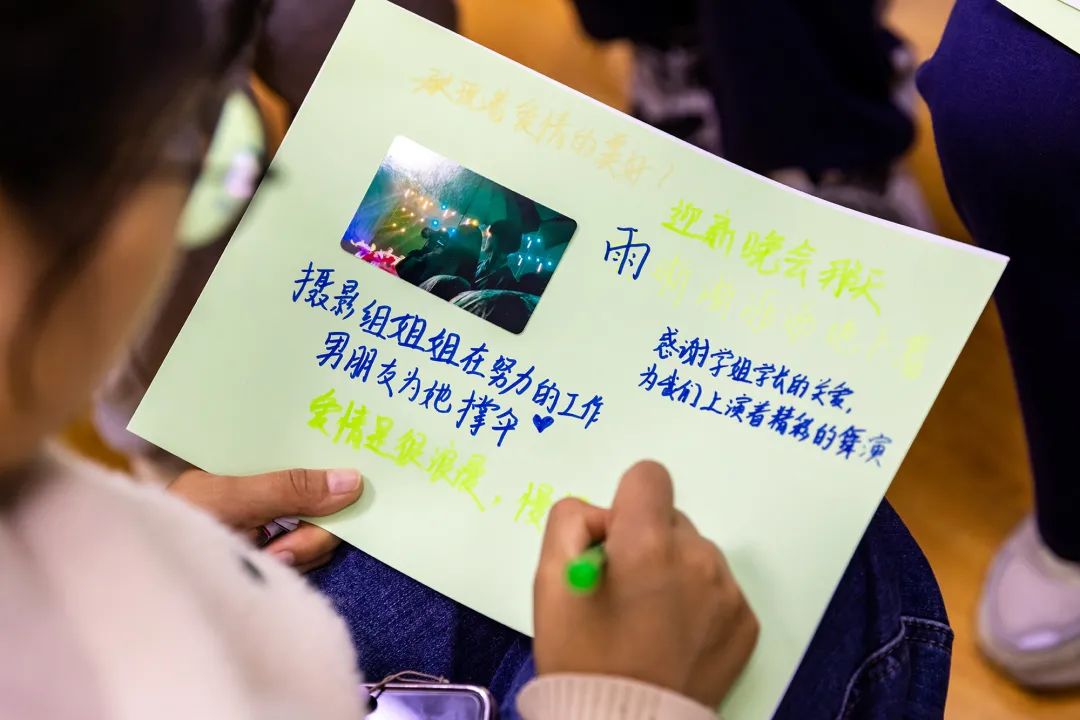 爱情的美好！
摄影组姐姐在努力的工作
男朋友为她撑伞
爱情是很浪漫，慢
迎新晚会那天
雨淅淅沥沥地下着
感谢学姐学长的关爱，
为我们上演着精彩的舞演